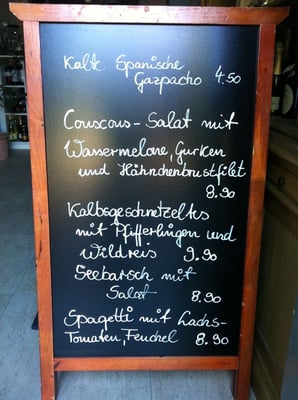 Kalte Spanische
Gazpacho 4.50
Couscous-Salat mit
Wassermelone, Gurken
und Hähnchenbrustfilet
8.90
Kalbsgeschnetzeltes
mit Pfifferlingen und
Wildreis 9.90
Seebarsch mit
Salat 8.90
Spagetti mit Lachs-
Tomaten, Fenchel 8.90